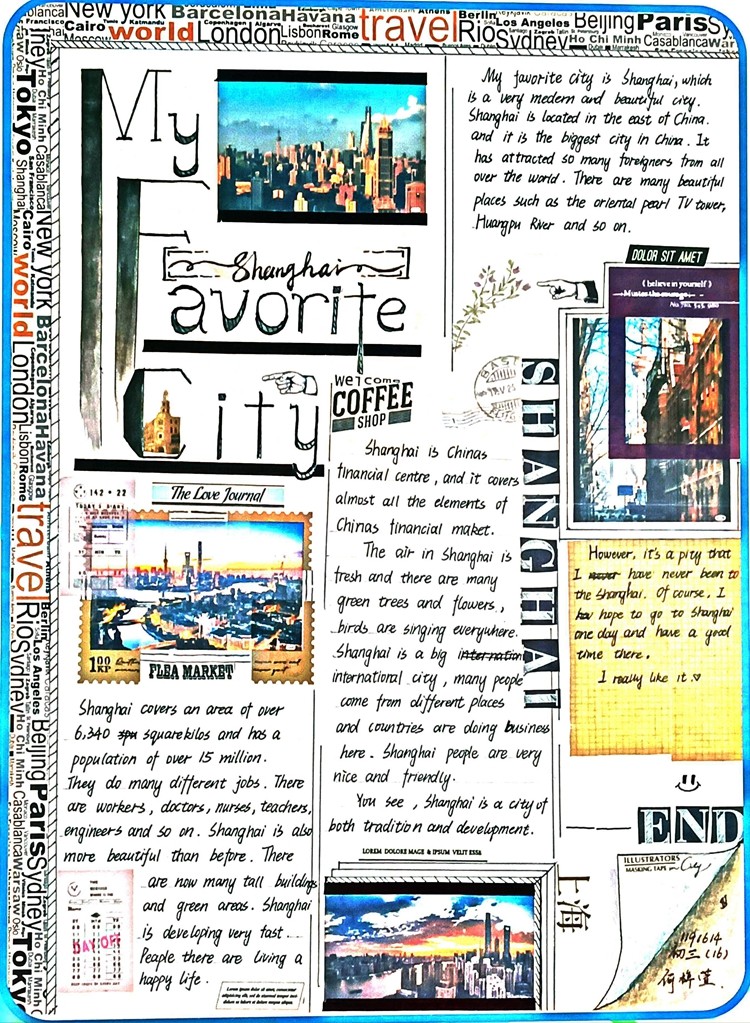 New York Barcelona Havana travel Berlin Los Angeles Beijing Paris
Cairo world London Lisbon Rome Rio Sydney Ho Chi Minh Casablanca
Tokyo
Ho Chi Minh Casablanca New York Barcelona Havana
San Francisco Cairo world London Lisbon Rome travel Rio
Berlin Los Angeles Beijing Paris Sydney
Ho Chi Minh Casablanca Warsaw Oslo Tokyo
My
Shanghai
Favorite
City
My favorite city is Shanghai, which
is a very medern and beautiful city.
Shanghai is located in the east of China.
and it is the biggest city in China. It
has attracted so many foreigners from all
over the world. There are many beautiful
places such as the oriental pearl TV tower,
Huangpu River and so on.
DOLOR SIT AMET
(believe in yourself)
Welcome
COFFEE
SHOP
SHANGHAI
Shanghai is Chinas
financial centre, and it covers
almost all the elements of
Chinas financial market.
The air in Shanghai is
fresh and there are many
green trees and flowers,
birds are singing everywhere.
Shanghai is a big internation
international city, many people
come from different places
and countries are doing business
here. Shanghai people are very
nice and friendly.
You see, Shanghai is a city of
both tradition and development.
LOREM DOLORE MAGE & IPSUM VELIT ESSE
上海
142 + 22
The Love Journal
1.00
KP
FLEA MARKET
Shanghai covers an area of over
6,340 squarekilos and has a
population of over 15 million.
They do many different jobs. There
are workers, doctors, nurses, teachers,
engineers and so on. Shanghai is also
more beautiful than before. There
are now many tall buildings
and green areas. Shanghai
is developing very fast.
People there are living a
happy life.
DAY OFF
However, it's a pity that
I never have never been to
the Shanghai. Of course, I
hav hope to go to Shanghai
one day and have a good
time there.
I really like it
END
ILLUSTRATORS
MASKING TAPE in City
1191614
初三(16)